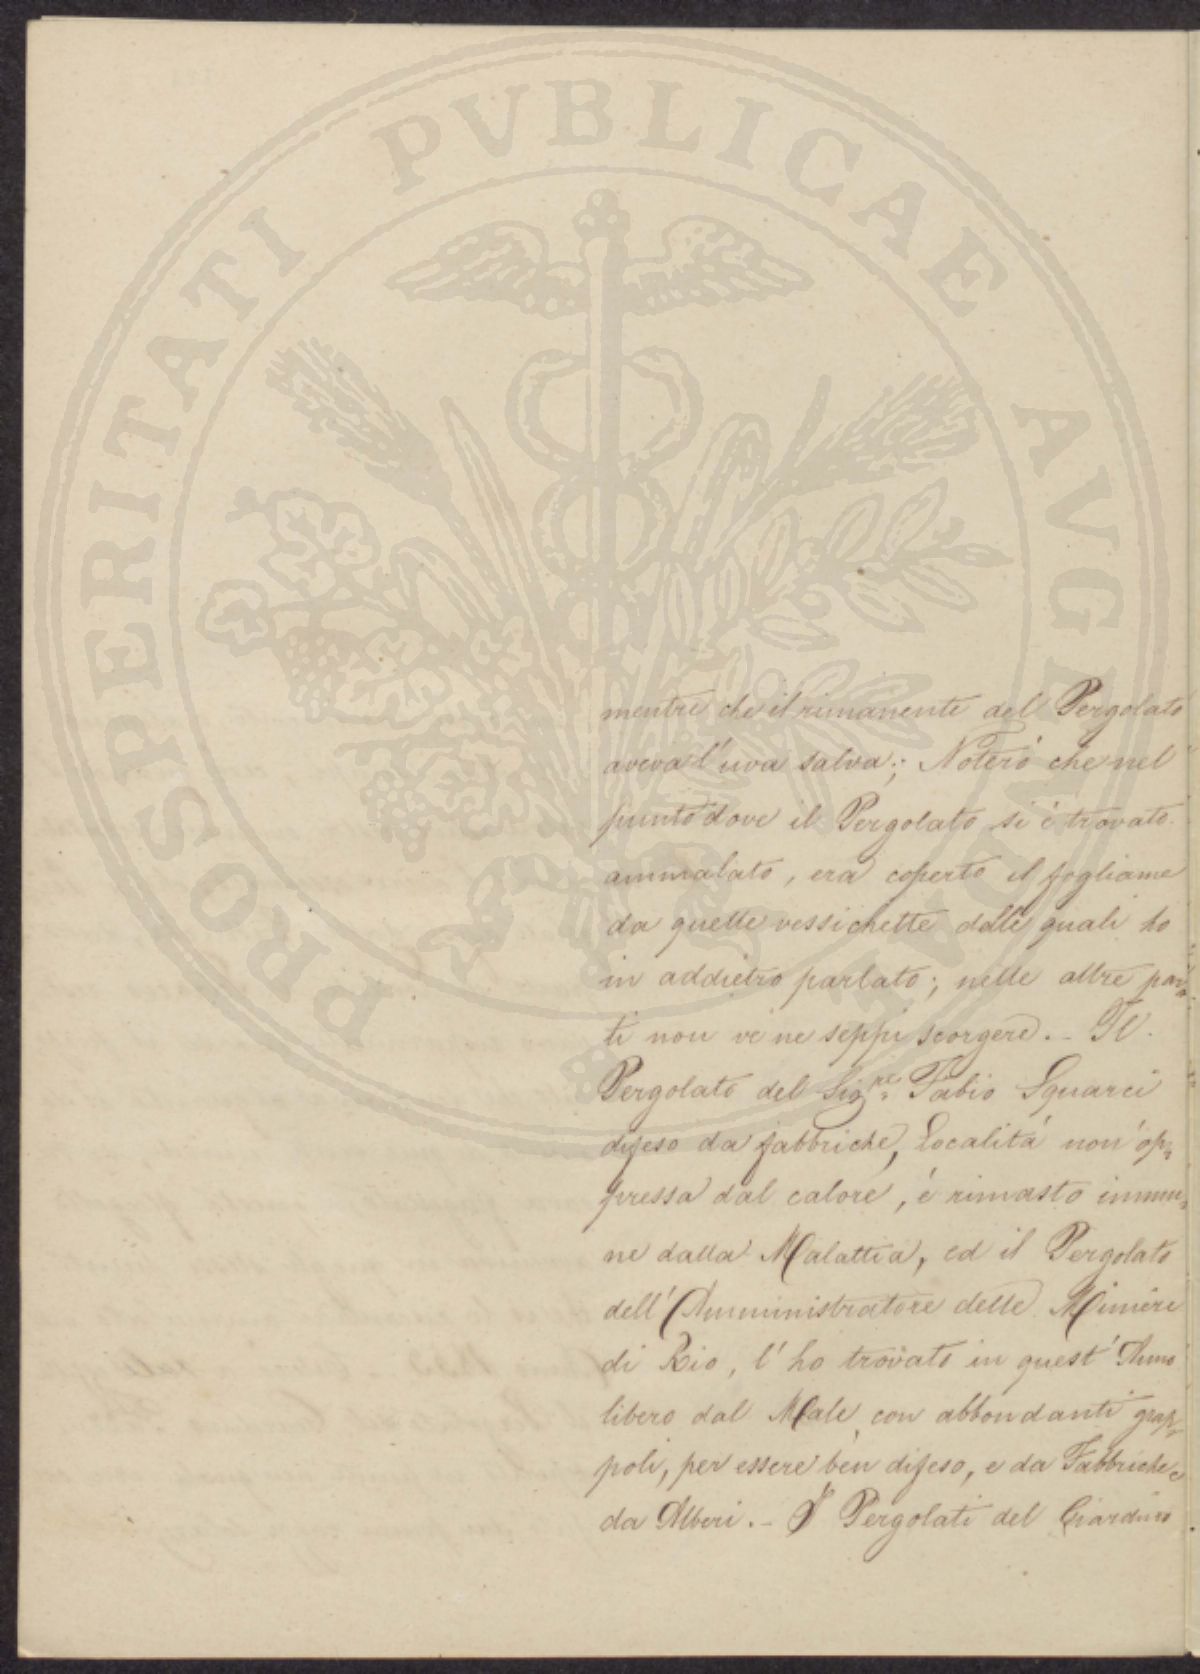 PROSPERITATI PVBLICAE AVGENDAE
mentre che il rimanente del Pergolato
aveva l'uva salva; Noterò che nel
punto dove il Pergolato si é trovato
ammalato, era coperto il fogliame
da quelle vessichette delle quali ho
in addietro parlato; nelle altre par=
ti non ve ne seppi scorgere. - Il
Pergolato del Sig.re Fabio Squarci
difeso da fabbriche, Localitá non op=
pressa dal calore, é rimasto immu=
ne dalla Malattia, ed il Pergolato
dell'Amministratore delle Miniere
di Rio, l'ho trovato in quest'Anno
libero dal Male con abbondanti grap=
poli, per essere ben difeso, e da Fabbriche e
da Alberi. - I Pergolati del Giardino